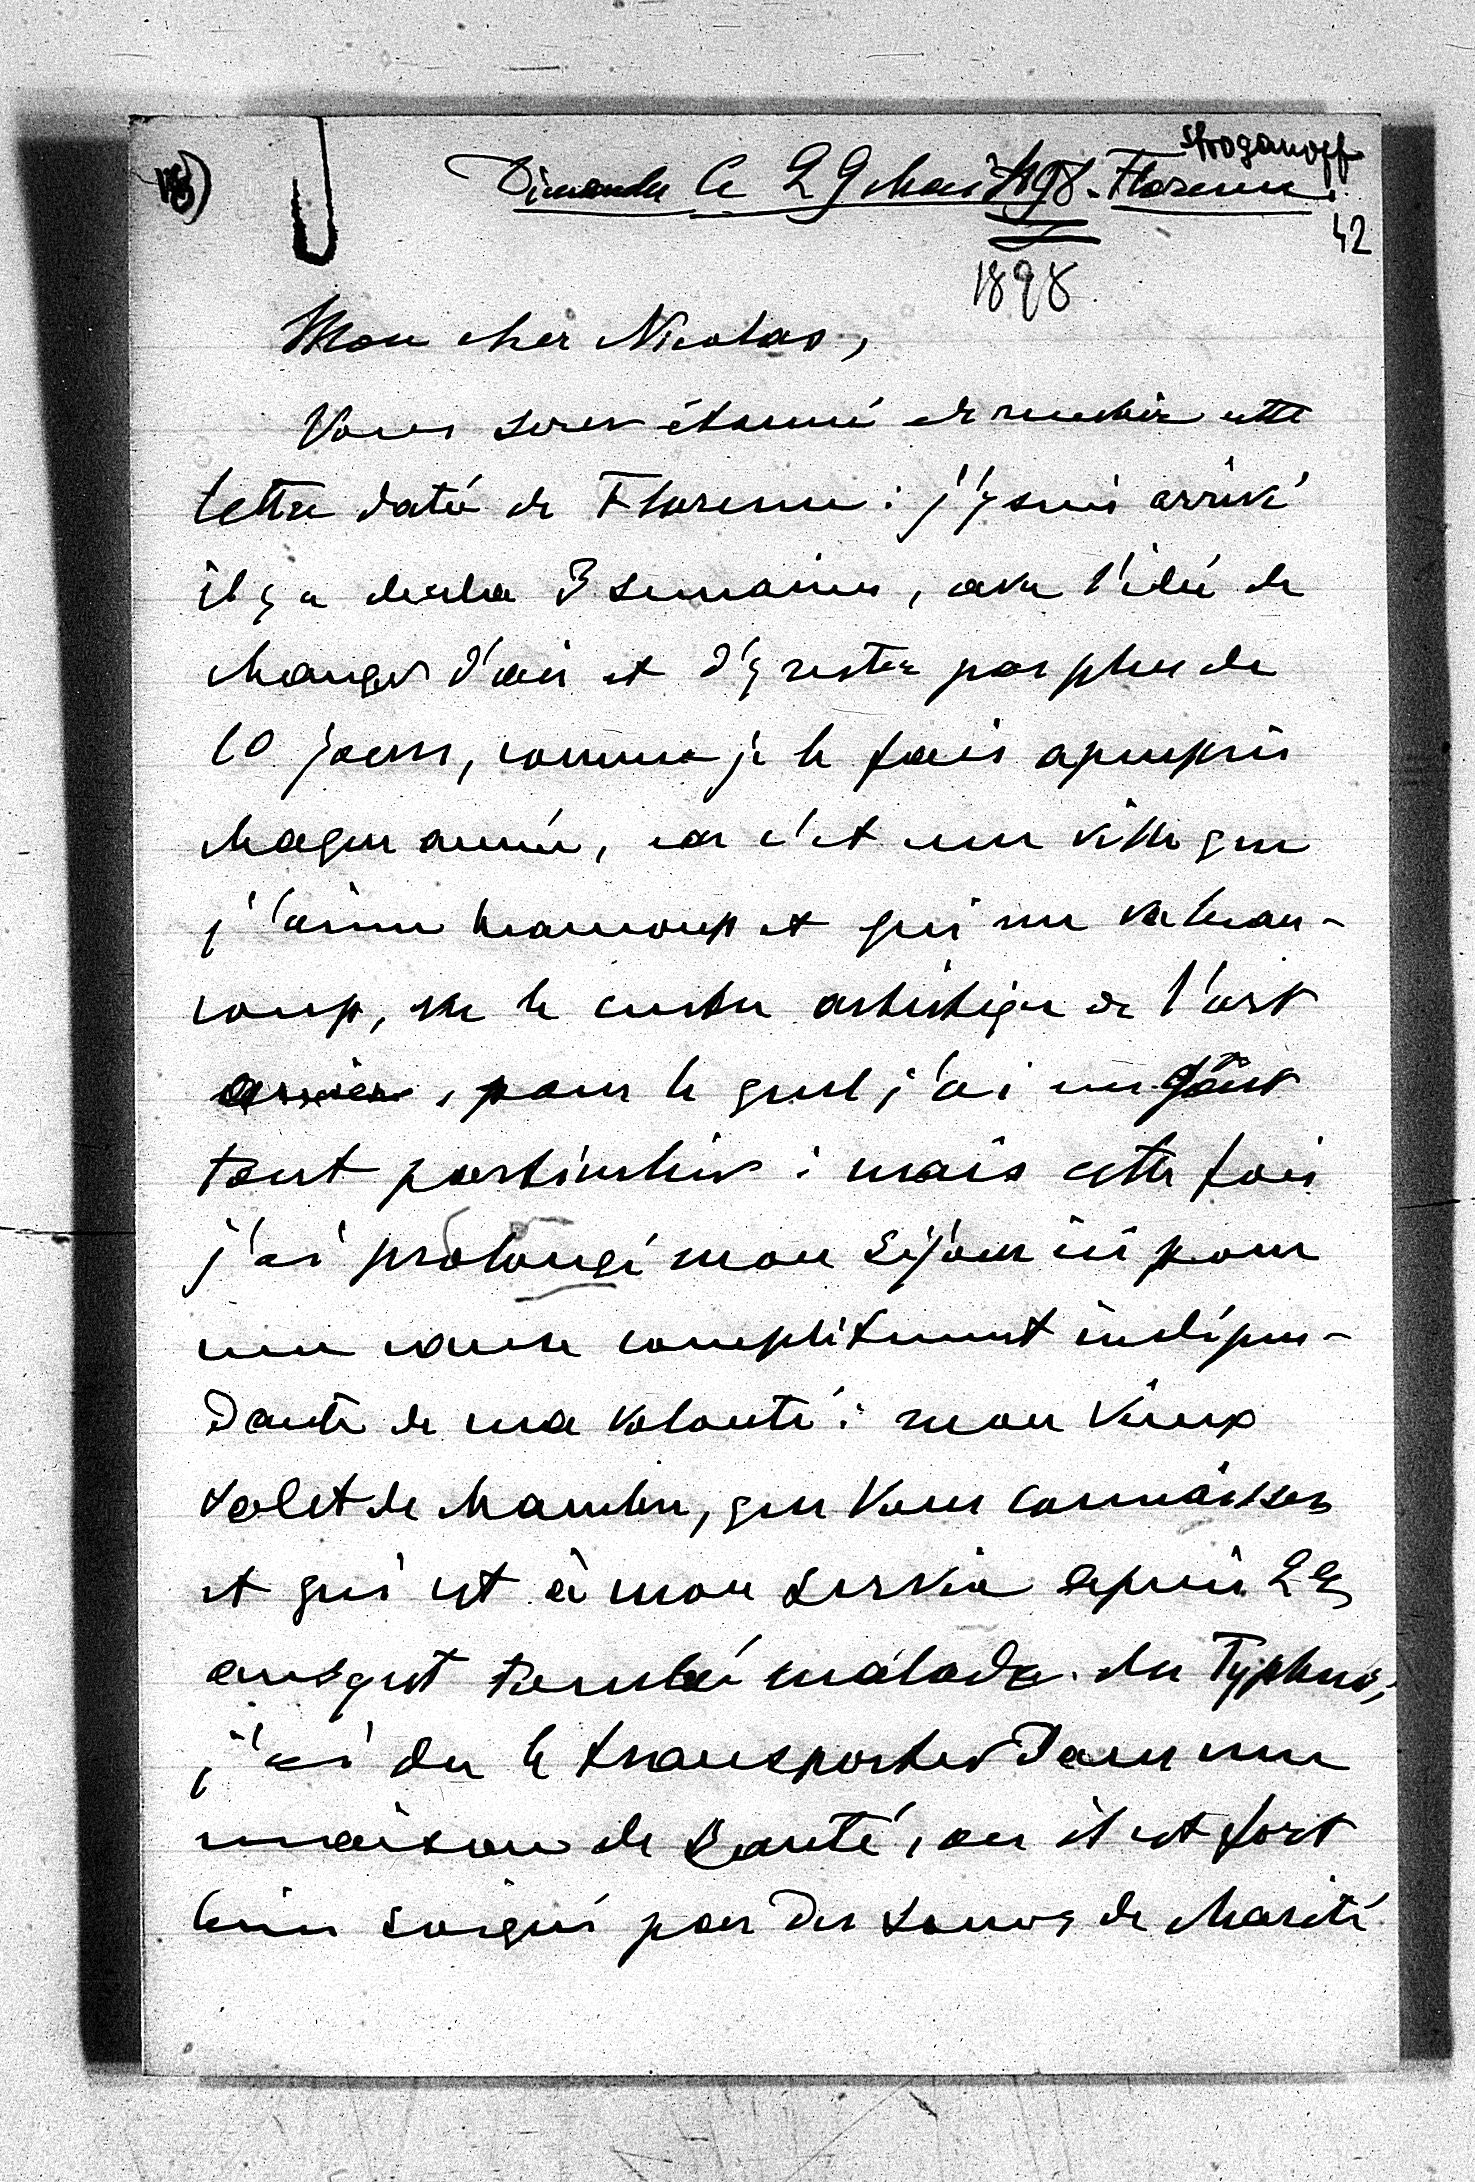 Stroganoff
Dimanche le 29 Mai 1898. Florence.
42
1898
Mon cher Nicolas,
Vous serez étonné de recevoir cette
lettre datée de Florence: j'y suis arrivé
il y a deja 3 semaines, avec l'idée de
changer d'air et d'y rester pas plus de
10 jours, comme je le fais apeupres
chaque année, car c'est une ville que
j'aime beaucoup et qui me va beau-
coup, vu le centre artistique de l'art
ancien, pour le quel j'ai un goût
tout particulier: mais cette fois
j'ai prolongé mon séjour ici pour
une cause complètement indépen-
dante de ma volonté: mon vieux
valet de chambre, que Vous connaissez
et qui est à mon service depuis 29
ans est tombé malade du Typhus;
j'ai du le transporter dans une
maison de Santé, ou il est fort
bien soigné par des soeurs de charité